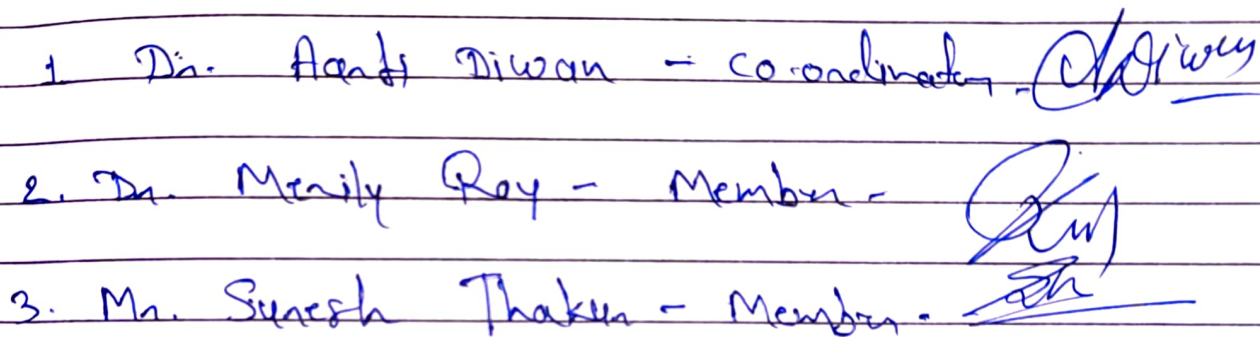 1. Dr. Aarti Diwan - Co-ordinator - Diwan
2. Dr. Merily Roy - Member -
3. Mr. Suresh Thakur - Member -